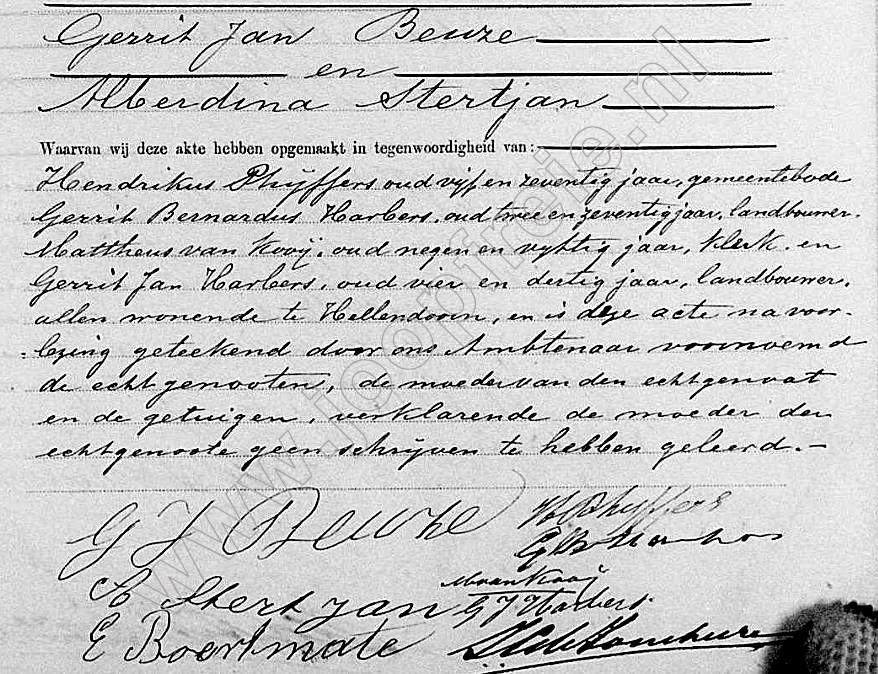 Gerrit Jan Beuze
en
Alberdina Stertjan
Waarvan wij deze akte hebben opgemaakt in tegenwoordigheid van:
Hendrikus Phijffers oud vijf en zeventig jaar, gemeentebode
Gerrit Bernardus Harbers, oud twee en zeventig jaar, landbouwer.
Mattheus van Kooij, oud negen en vyftig jaar, klerk. en
Gerrit Jan Harbers, oud vier en dertig jaar, landbouwer,
allen wonende te Hellendoorn, en is deze acte na voor-
lezing geteekend door ons Ambtenaar voornoemd
de echtgenooten, de moeder van den echtgenoot
en de getuigen, verklarende de moeder der
echtgenoote geen schrijven te hebben geleerd.-
G J Beuze
H Phyffers
G B Harbers
A Stertjan
M van Kooij
G J Harbers.
E Boertmate
www.jooptreje.nl